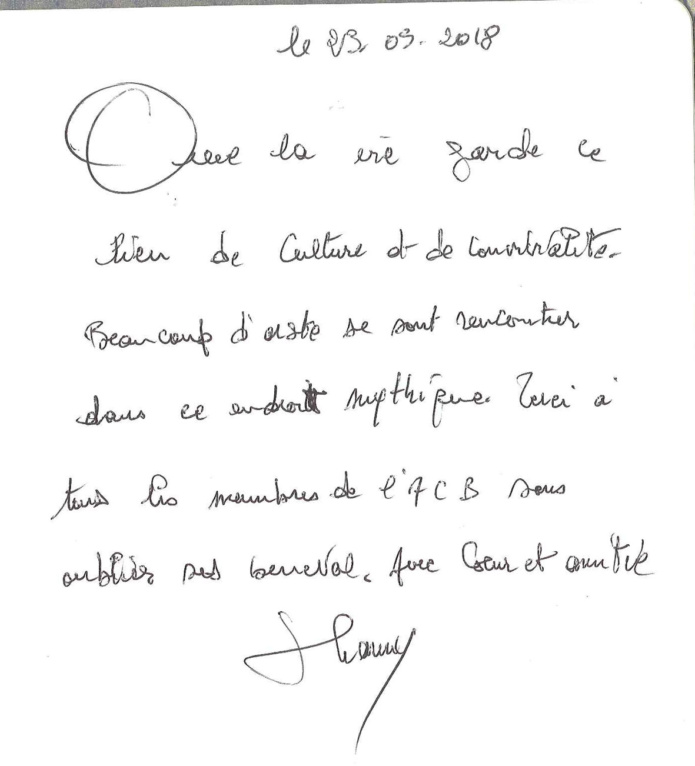 le 23. 03. 2018
Que la vie garde ce
lieu de Culture et de convivialité.
Beaucoup d'artiste se sont rencontrer
dans ce endroit mythique. Merci à
tous les membres de l'ACB sans
oublier ses benevol. Avec Coeur et amitié